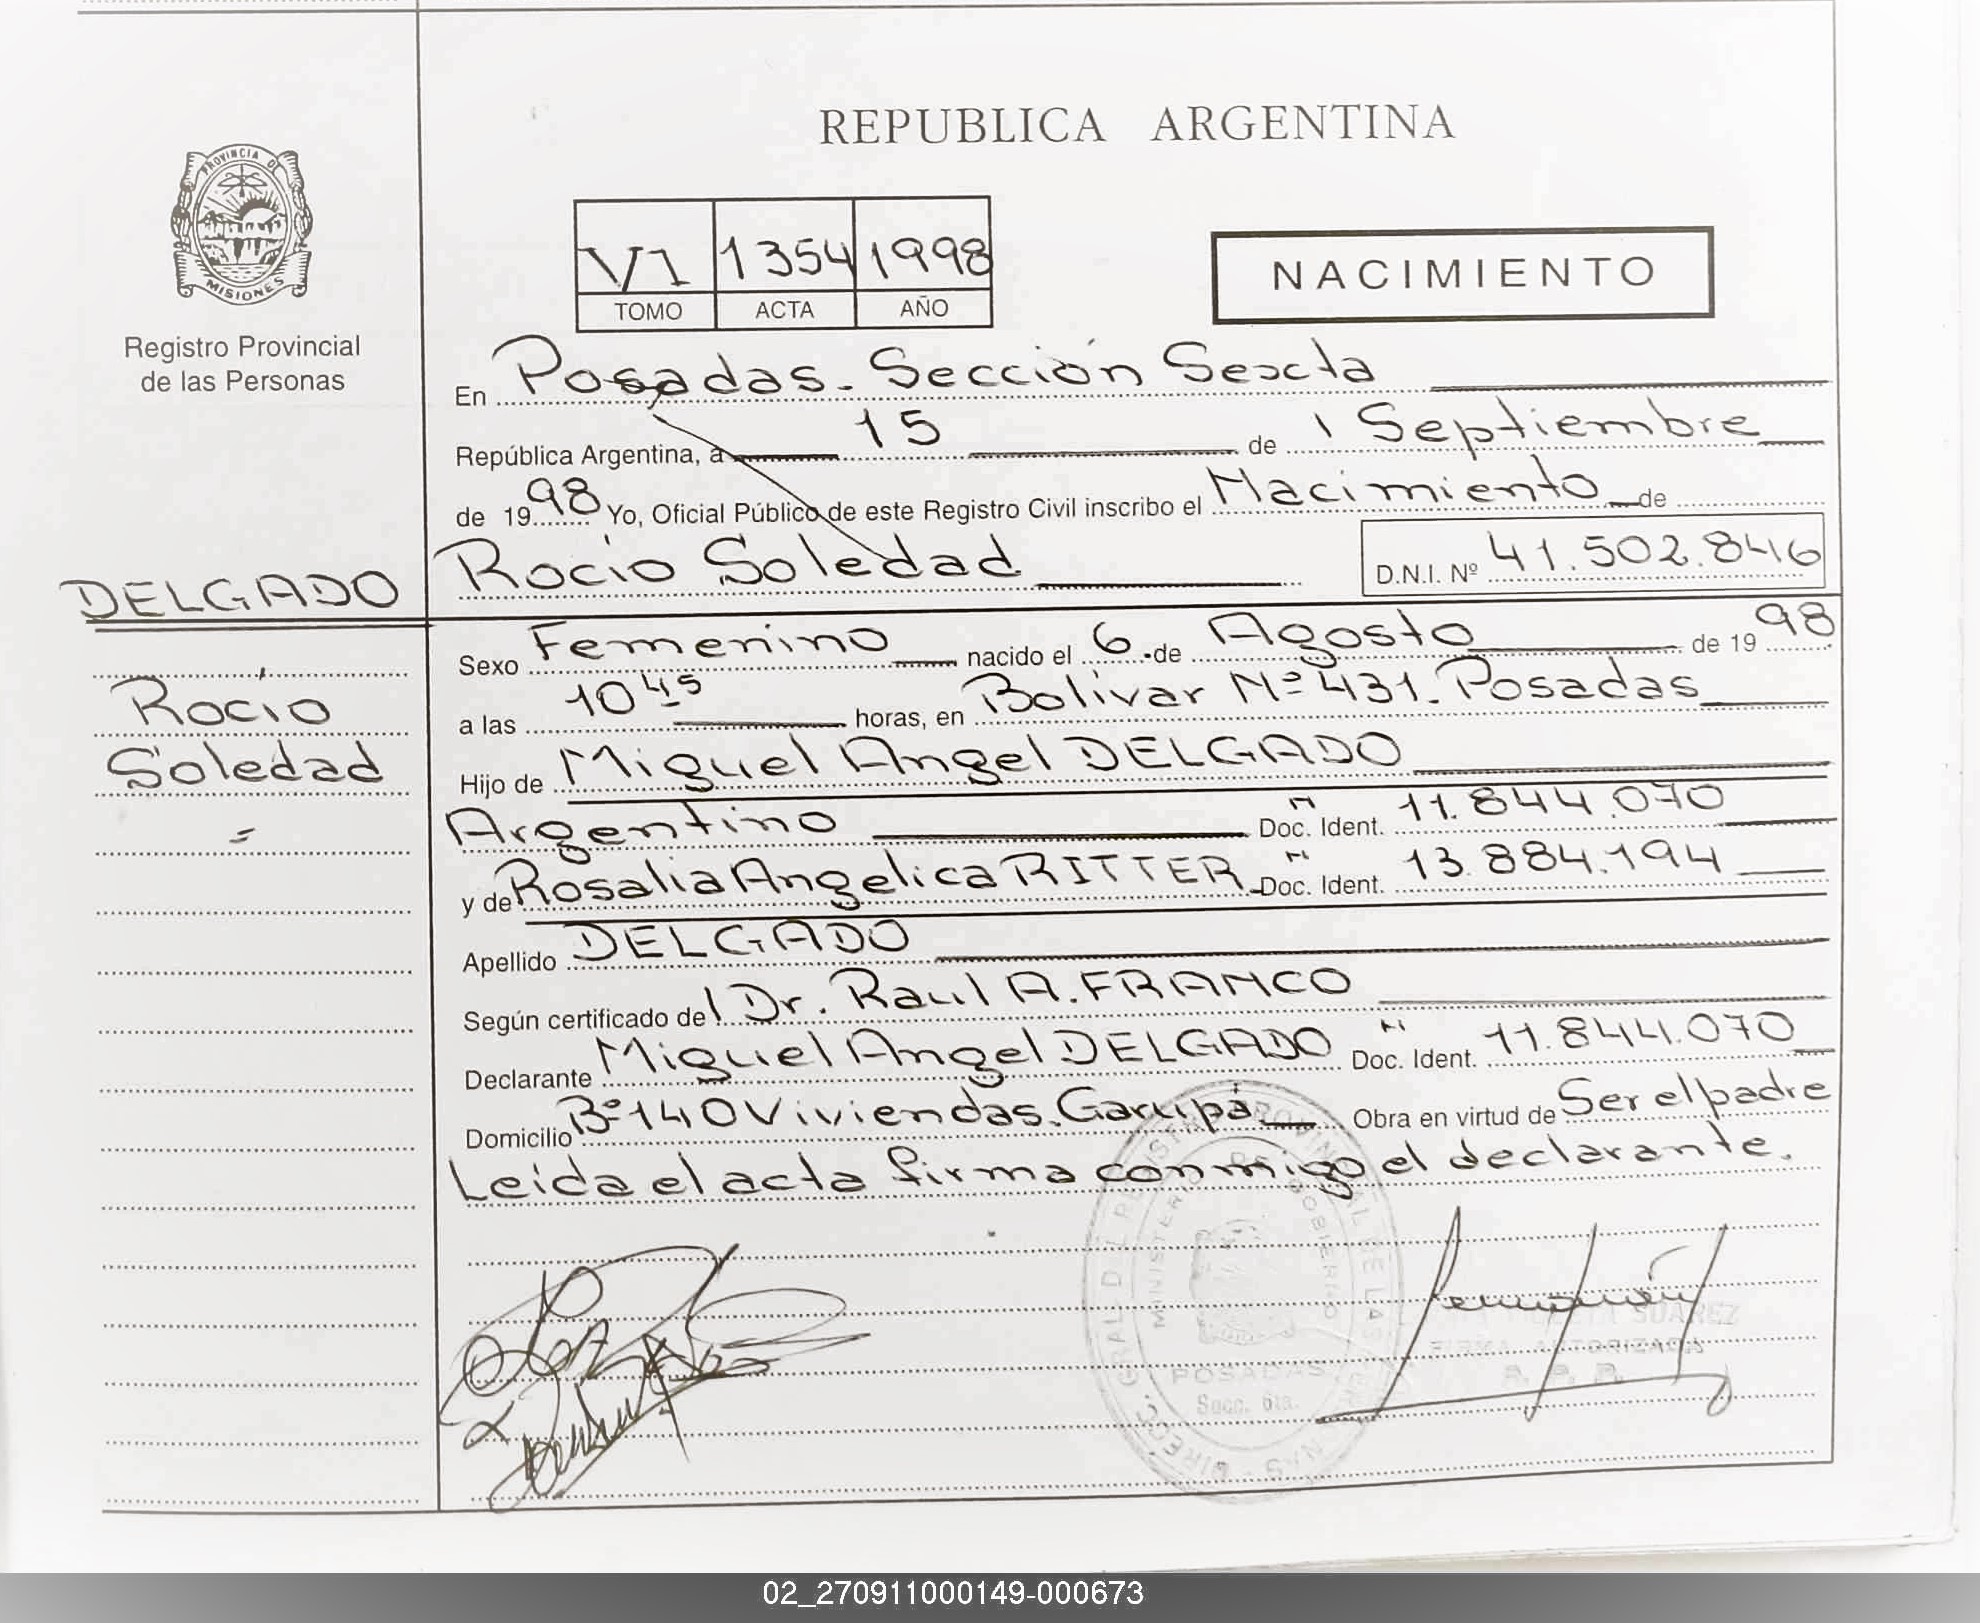 REPUBLICA ARGENTINA
PROVINCIA DE
MISIONES
Registro Provincial
de las Personas
VI 1354 1998
TOMO ACTA AÑO
NACIMIENTO
En Posadas. Sección Sexta
República Argentina, a 15 de Septiembre
de 1998 Yo, Oficial Público de este Registro Civil inscribo el Nacimiento de
DELGADO
Rocio
Soledad
Rocio Soledad D.N.I. Nº 41.502.846
Sexo Femenino nacido el 6 de Agosto de 1998
a las 10 45 horas, en Bolivar Nº 431. Posadas
Hijo de Miguel Angel DELGADO
Argentino Doc. Ident. 11.844.070
y de Rosalia Angelica RITTER Doc. Ident. 13.884.194
Apellido DELGADO
Según certificado del Dr. Raul A. FRANCO
Declarante Miguel Angel DELGADO Doc. Ident. 11.844.070
Domicilio Bº 140 Viviendas. Garupá Obra en virtud de Ser el padre
Leída el acta firma conmigo el declarante.
DIREC. GRAL. DEL REGISTRO PROVINCIAL DE LAS PERSONAS
MINISTERIO DE GOBIERNO
POSADAS
Secc. 6ta.
SUAREZ
FIRMA AUTORIZADA
R. P. P.
02_270911000149-000673